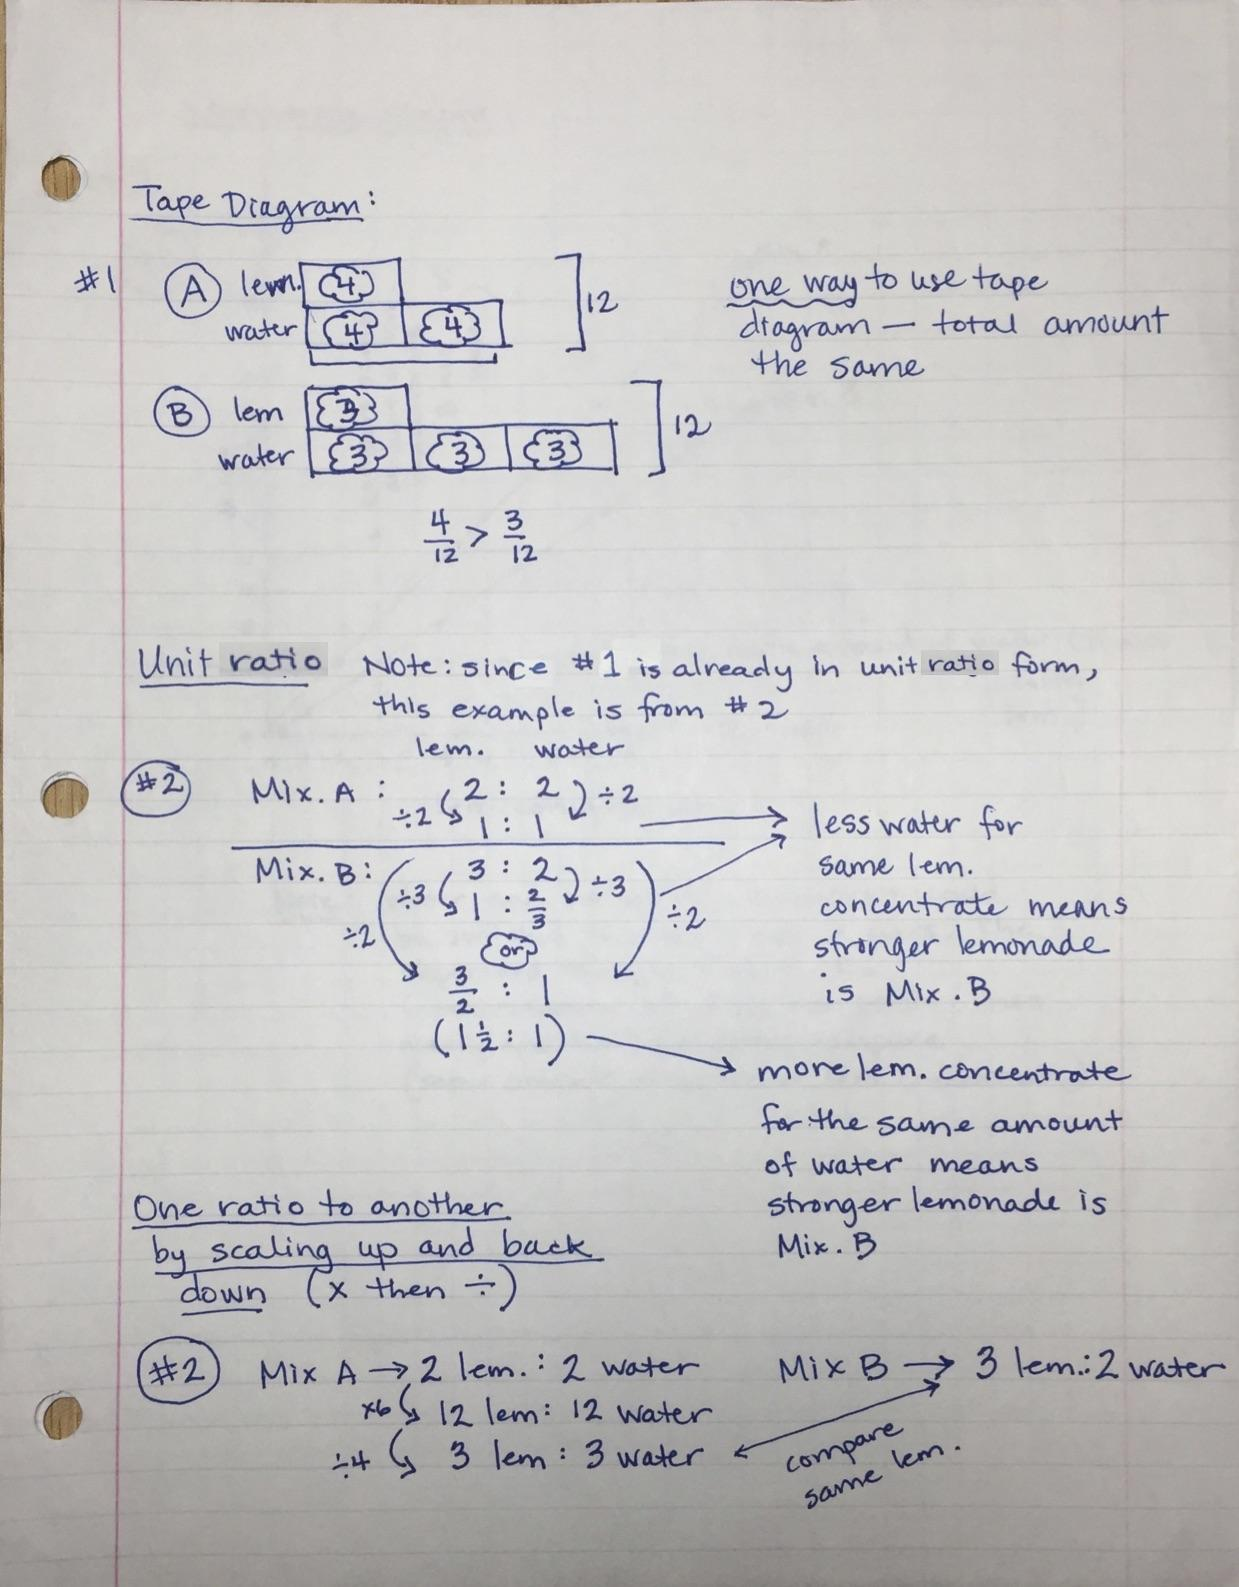 Tape Diagram:
#1 A lem. 4 12
water 4 4
one way to use tape
diagram — total amount
the same
B lem 3 12
water 3 3 3
4/12 > 3/12
Unit ratio Note: since #1 is already in unit ratio form,
this example is from #2
lem. water
#2 Mix. A: 2 : 2
÷2 1 : 1 ÷2
Mix. B: 3 : 2
÷3 1 : 2/3 ÷3
or
÷2 3/2 : 1 ÷2
(1 1/2 : 1)
less water for
same lem.
concentrate means
stronger lemonade
is Mix. B
more lem. concentrate
for the same amount
of water means
stronger lemonade is
Mix. B
One ratio to another
by scaling up and back
down (x then ÷)
#2 Mix A → 2 lem. : 2 water Mix B → 3 lem.: 2 water
x6 12 lem: 12 water
÷4 3 lem : 3 water
compare
same lem.